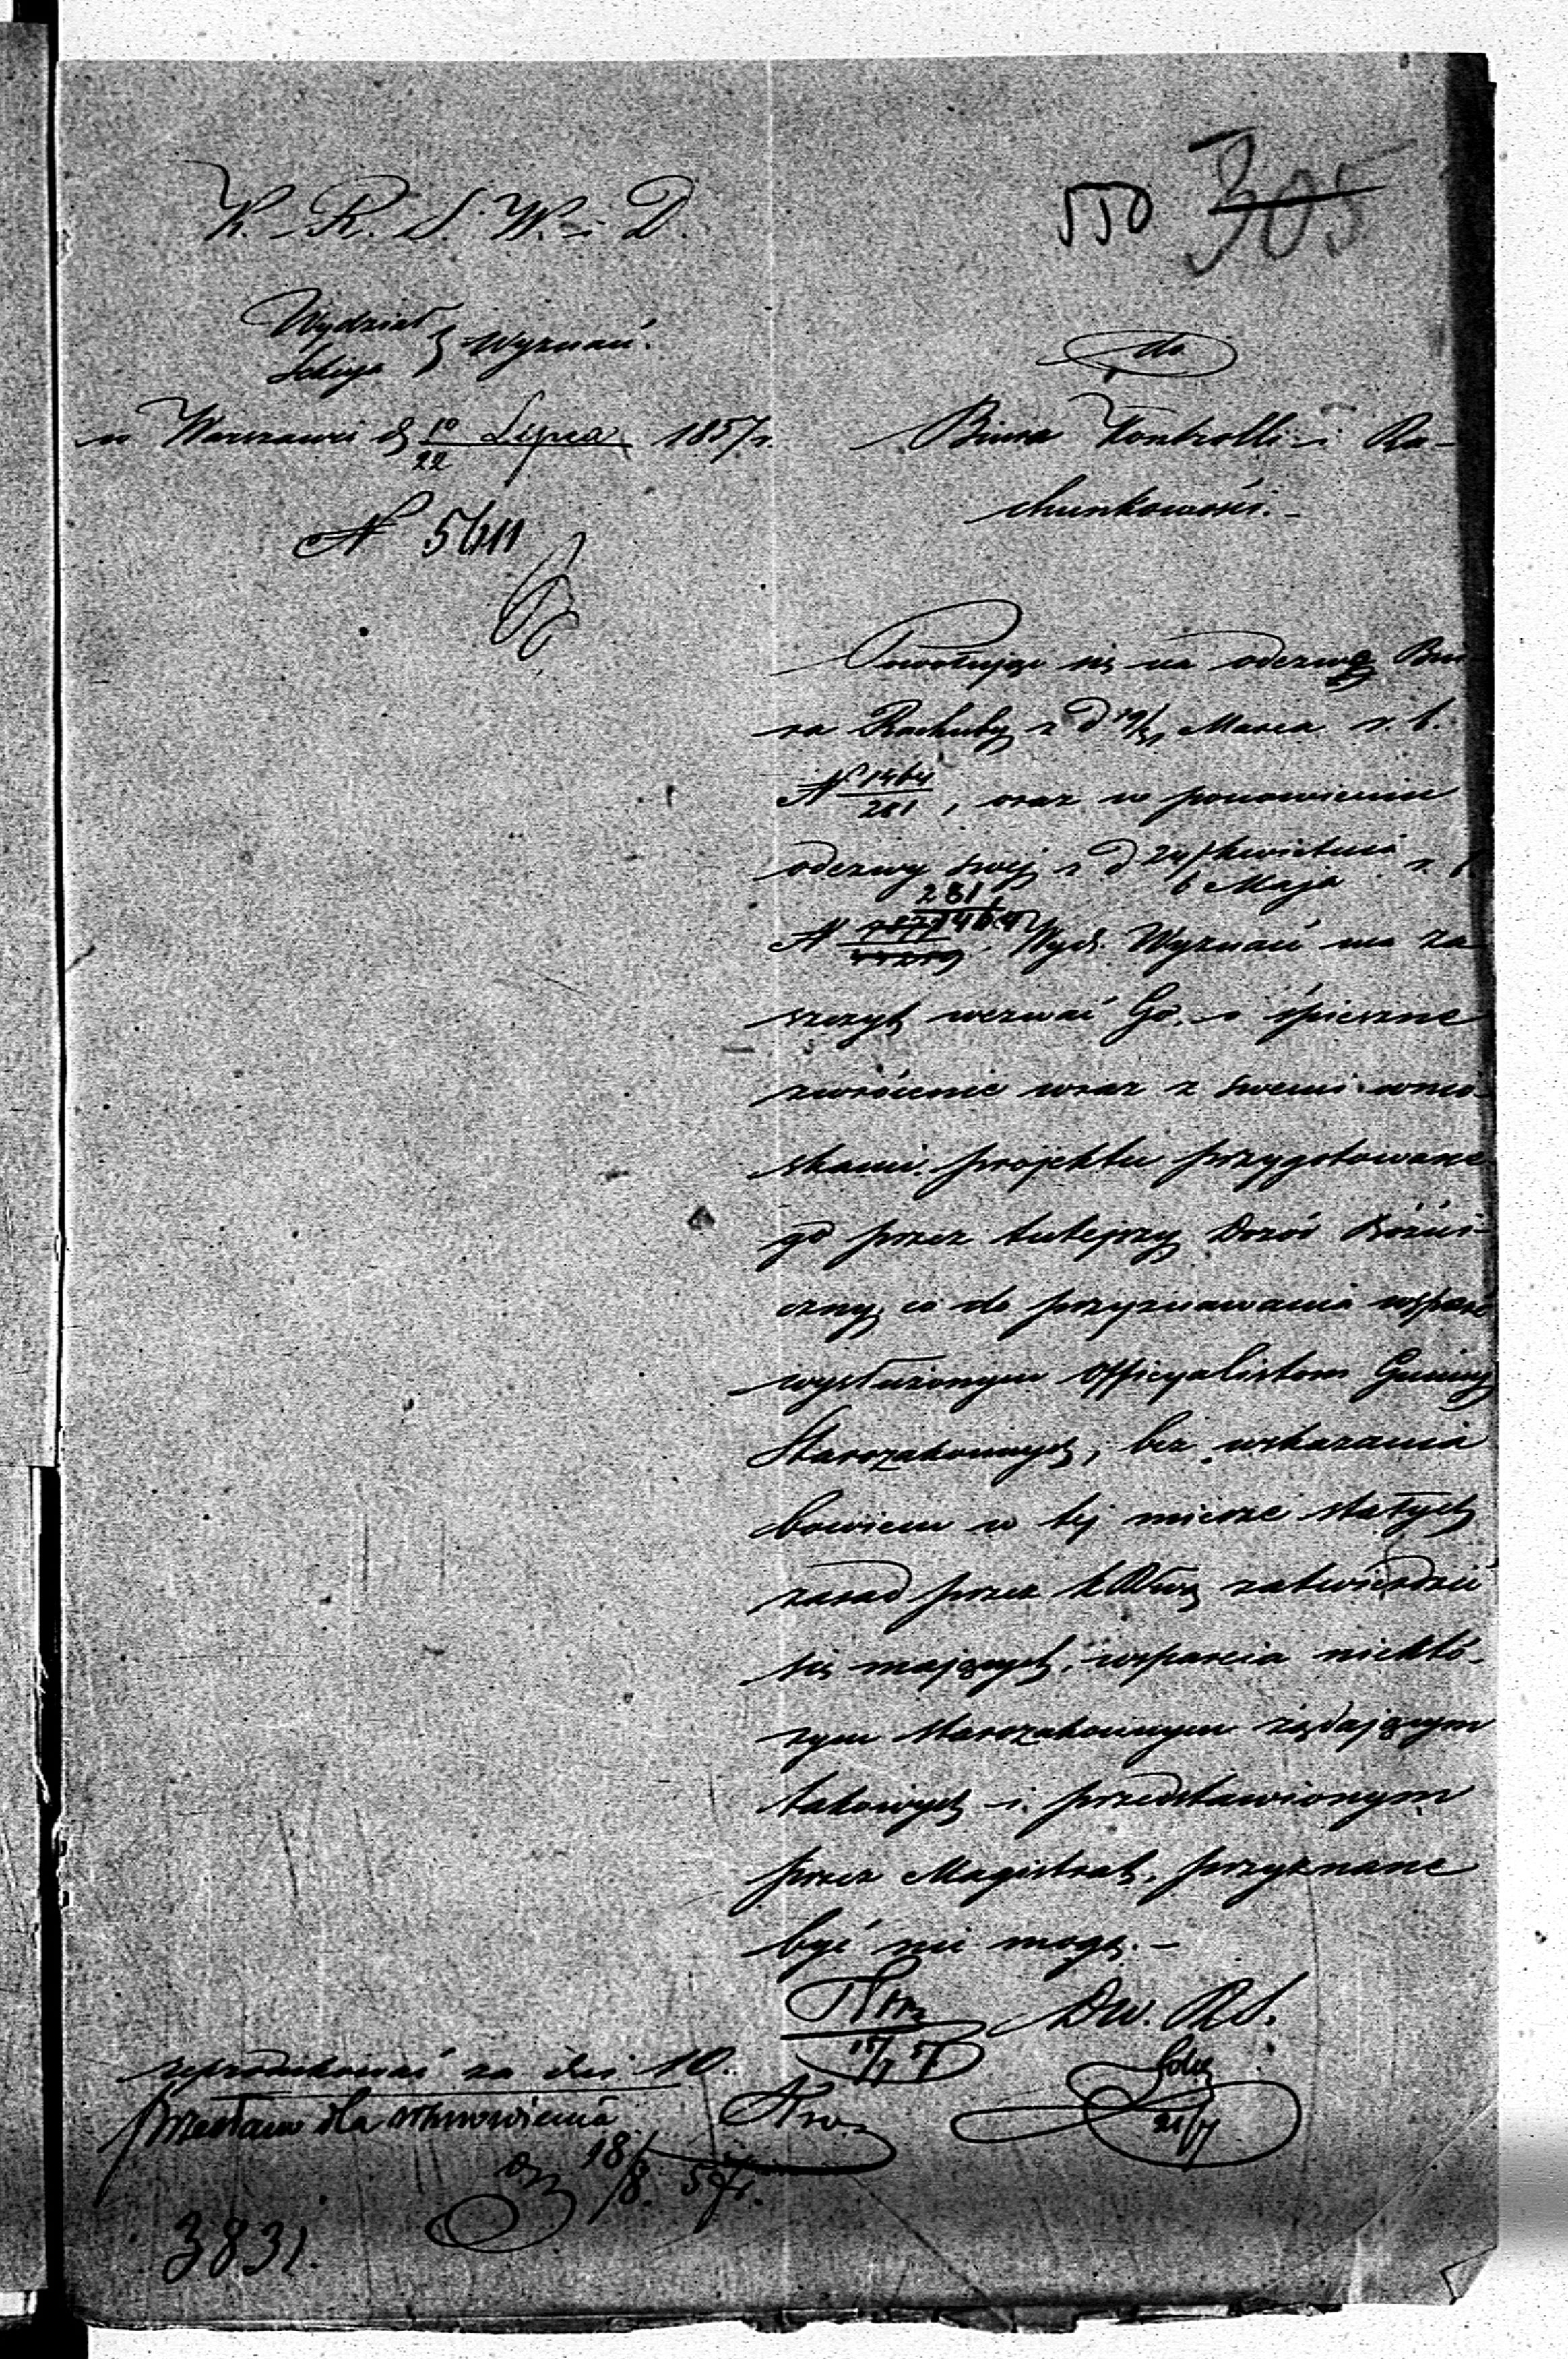 550 305
K. R. S. W. i D.
Wydział
Sekcya } Wyznań.
w Warszawie d. 10/22 Lipca 1857 r.
N 5411
do
Biura Kontrolli i Ra-
chunkowości.-
Powołując się na odezwę Biu-
ra Rachuby z d 19/31 Marca r. b.
N. 1464/281, oraz w ponowieniu
odezwy swej z d 24 Kwietnia/6 Maja r. b
N 281/1464 Wydz. Wyznań ma za
szczyt wezwać Go. o śpieszne
zwrócenie wraz z swemi wnio-
skami projektu przygotowane-
go przez tutejszy Dozór Bóżni-
czny, co do przyznawania wsparć
wysłużonym Officyalistom Gminy
Starozakonnych, bez wskazania
bowiem w tej mierze stałych
zasad przez zatwierdzić
się mających, wsparcia niektó-
rym starozakonnym żądającym
takowych i przedstawionym
przez Magistrat, przyznane
być nie mogą.-
Dw. R S.
reprodukować za dni 10.
przesłano dla
18/8. 57 r.
3831.